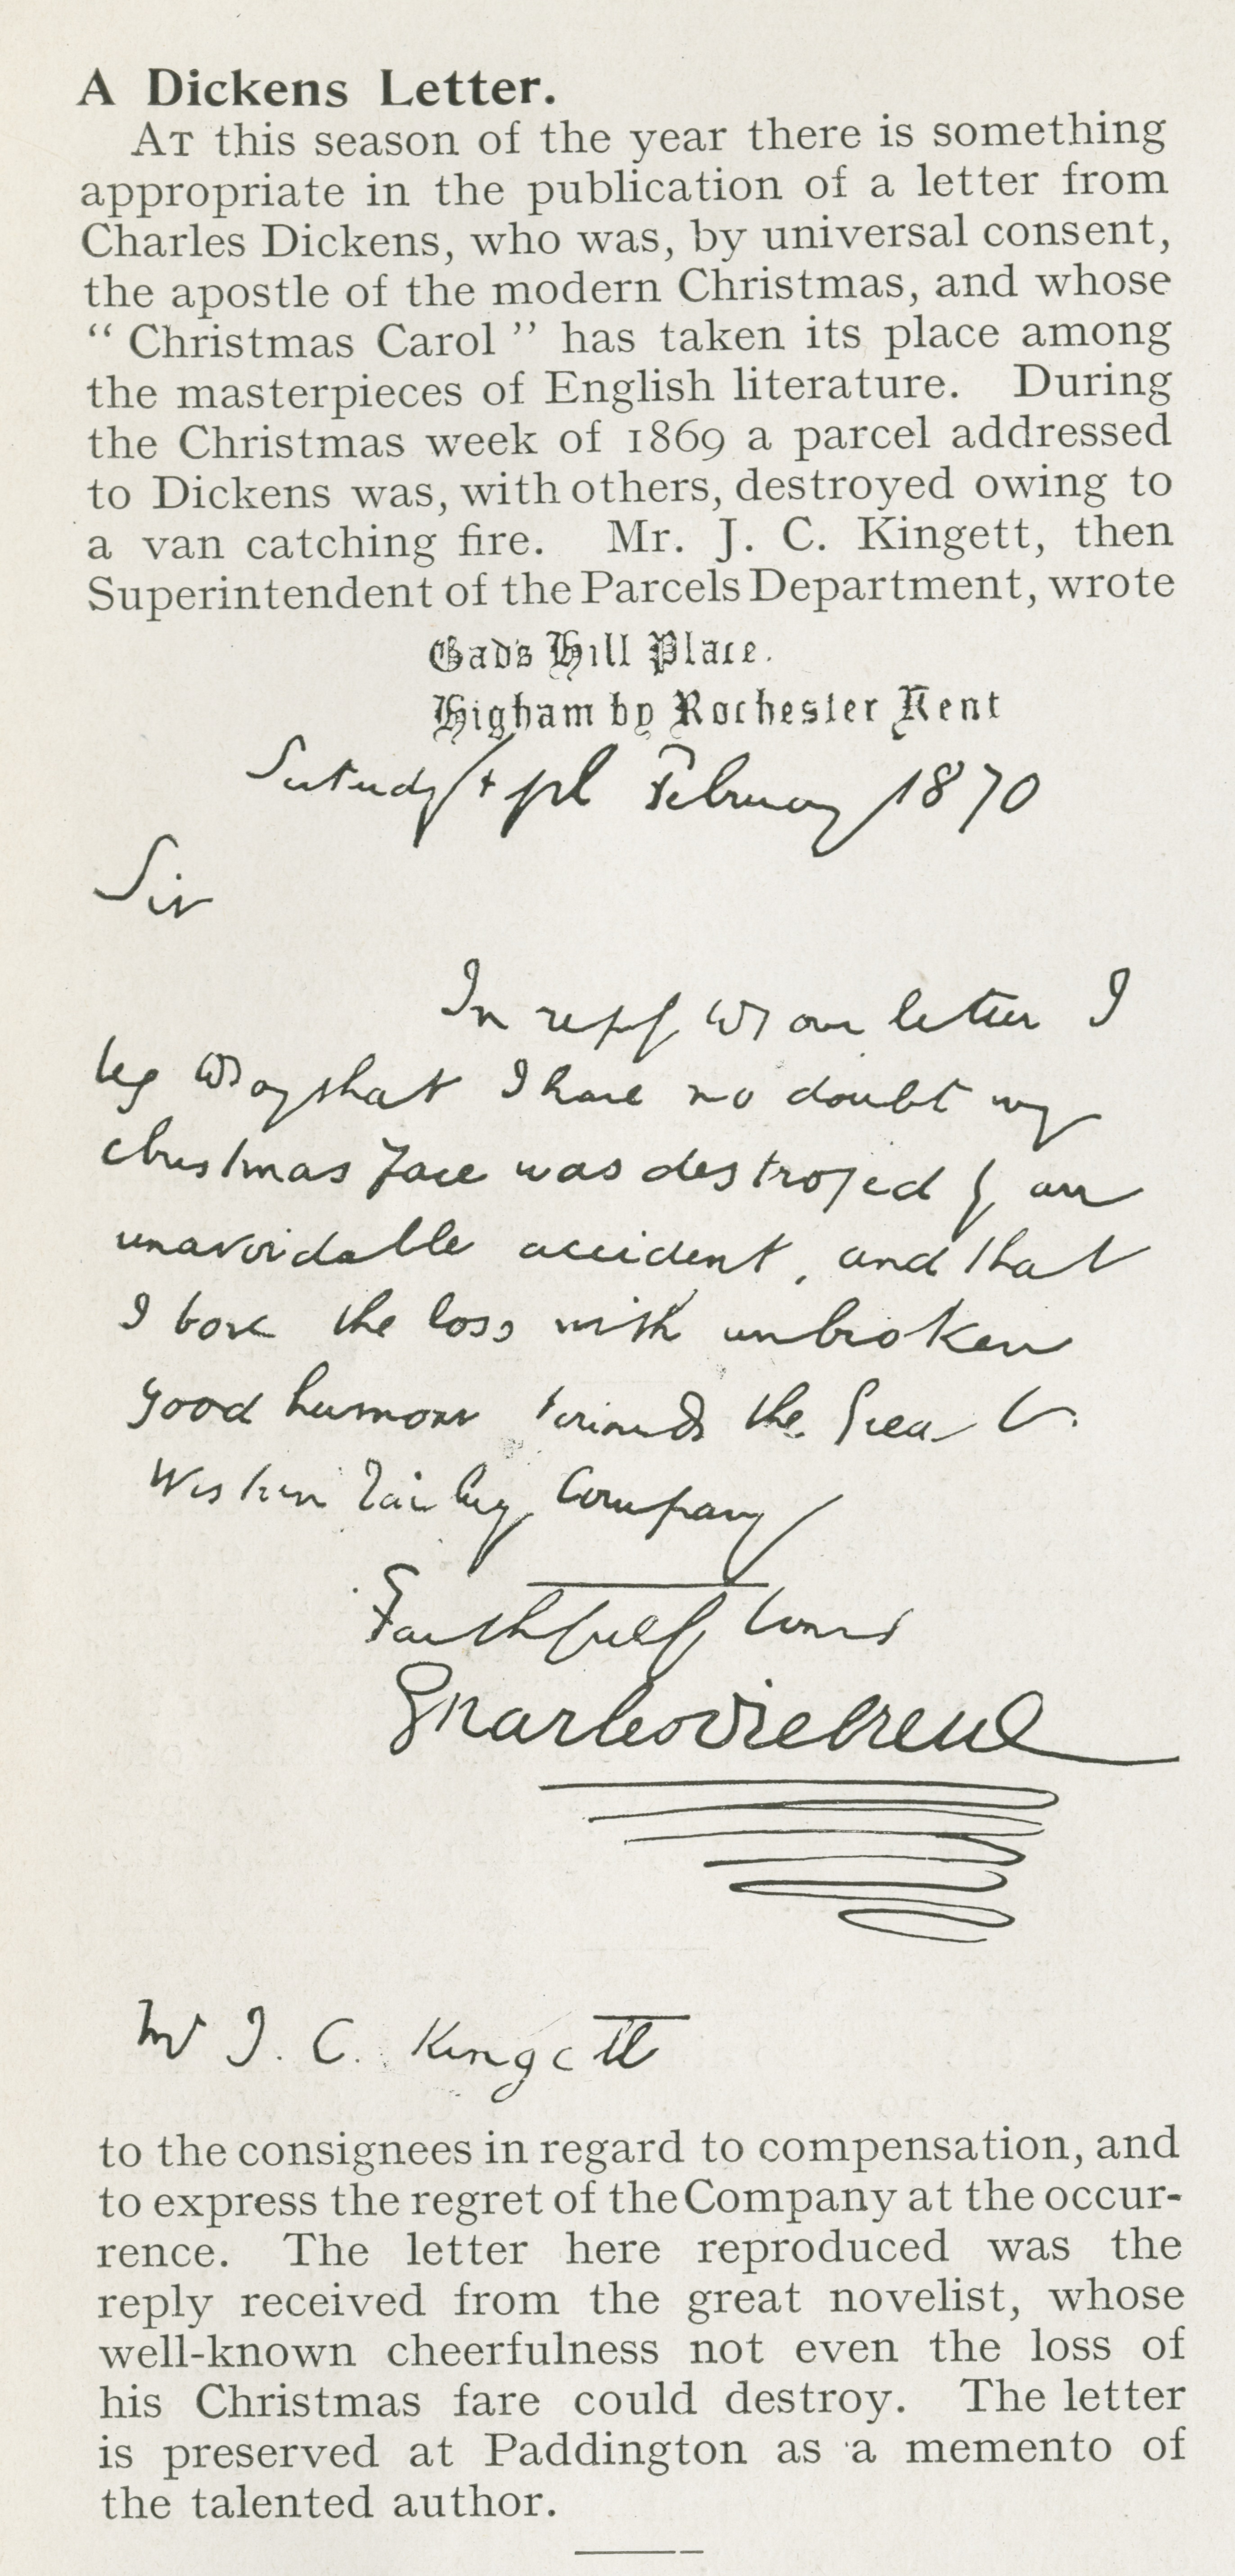 A Dickens Letter.
AT this season of the year there is something
appropriate in the publication of a letter from
Charles Dickens, who was, by universal consent,
the apostle of the modern Christmas, and whose
“ Christmas Carol ” has taken its place among
the masterpieces of English literature. During
the Christmas week of 1869 a parcel addressed
to Dickens was, with others, destroyed owing to
a van catching fire. Mr. J. C. Kingett, then
Superintendent of the Parcels Department, wrote
Gad's Hill Place.
Higham by Rochester Kent
Saturday February 1870
Sir
In reply to your letter I
beg to say that I have no doubt my
Christmas fare was destroyed by an
unavoidable accident, and that
I bore the loss with unbroken
good humour towards the Great
Western Railway Company
Faithfully Yours
Charles Dickens
Mr J. C. Kingett
to the consignees in regard to compensation, and
to express the regret of the Company at the occur-
rence. The letter here reproduced was the
reply received from the great novelist, whose
well-known cheerfulness not even the loss of
his Christmas fare could destroy. The letter
is preserved at Paddington as a memento of
the talented author.